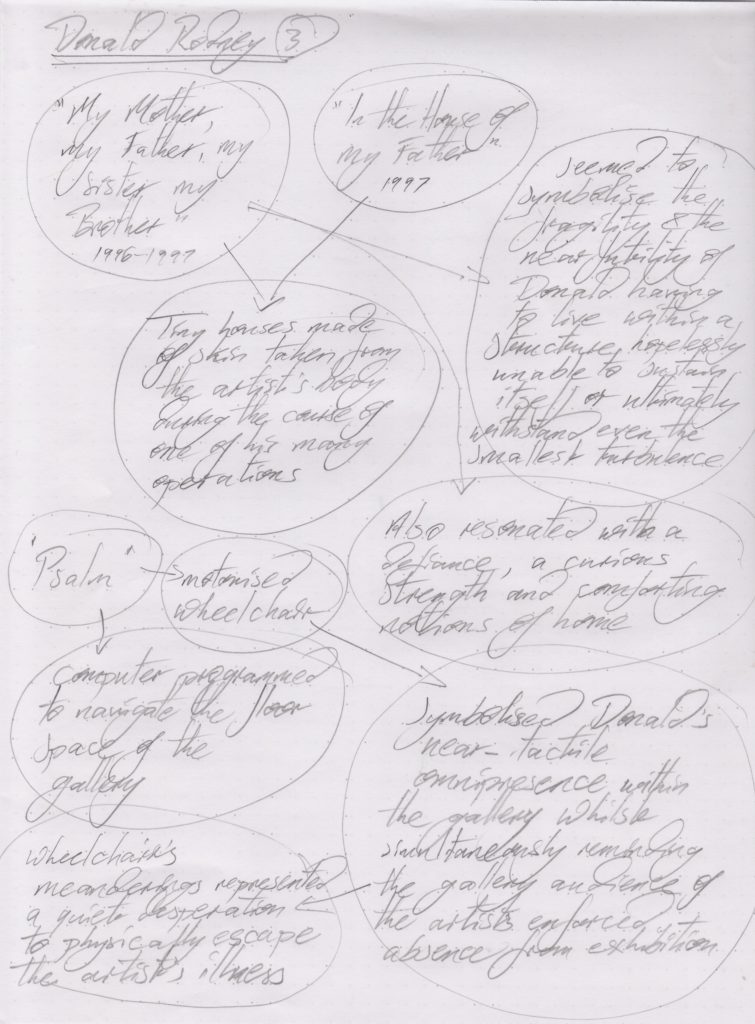 Donald Rodney 3
"My Mother,
my Father, my
Sister my
Brother"
1996-1997
"In the House of
my Father"
1997
Seemed to
symbolise the
fragility & the
near futility of
Donald having
to live within a
structure, hopelessly
unable to sustain
itself or ultimately
withstand even the
smallest turbulence
Tiny houses made
of skin taken from
the artist's body
during the course of
one of his many
operations
Also resonated with a
defiance, a curious
strength and comforting
notions of home
"Psalm"
motorised
wheelchair
computer programmed
to navigate the floor
space of the
gallery
Symbolised Donald's
near-tactile
omnipresence within
the gallery whilst
simultaneously reminding
the gallery audience of
the artist's enforced
absence from exhibition
wheelchair's
meanderings represented
a quiet desperation
to physically escape
the artist's illness